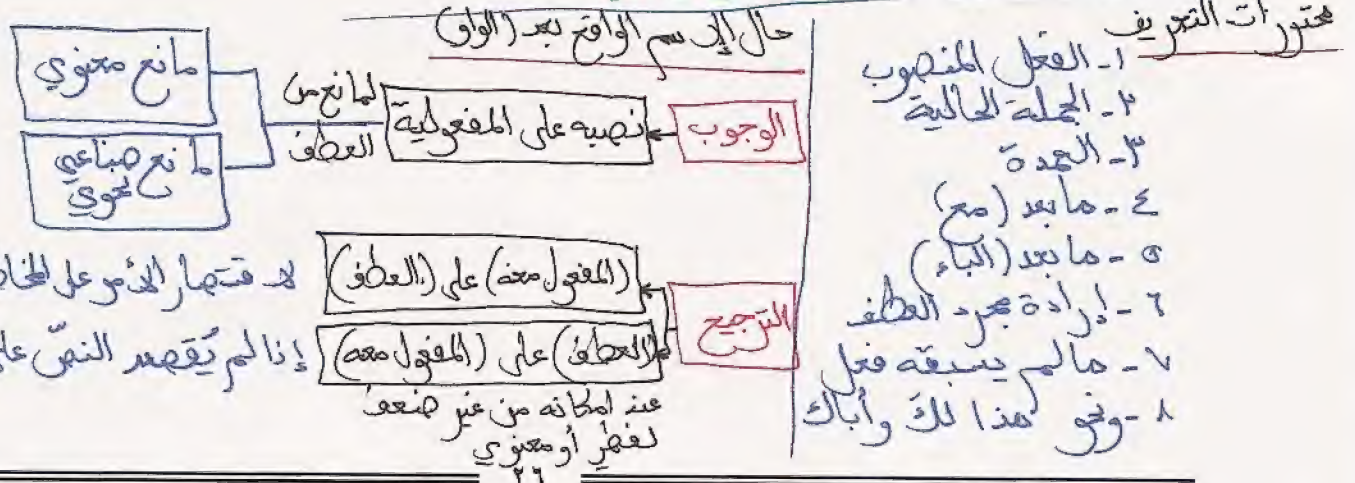 محترزات التعريف
١- الفعل المنصوب
٢- الجملة الحالية
٣- العمدة
٤- ما بعد (مع)
٥- ما بعد (الباء)
٦- إرادة مجرد العطف
٧- ما لم يسبقه فعل
٨- ونحو هذا لك وأباك
حال الاسم الواقع بعد (الواو)
الوجوب
نصبه على المفعولية
لمانع من
العطف
مانع معنوي
مانع صناعي
نحوي
الترجيح
(المفعول معه) على (العطف)
لاقتصار الأمر على
(العطف) على (المفعول معه)
إذا لم يُقصد النصّ على
عند امكانه من غير ضعف
لفظي أو معنوي
٢٦